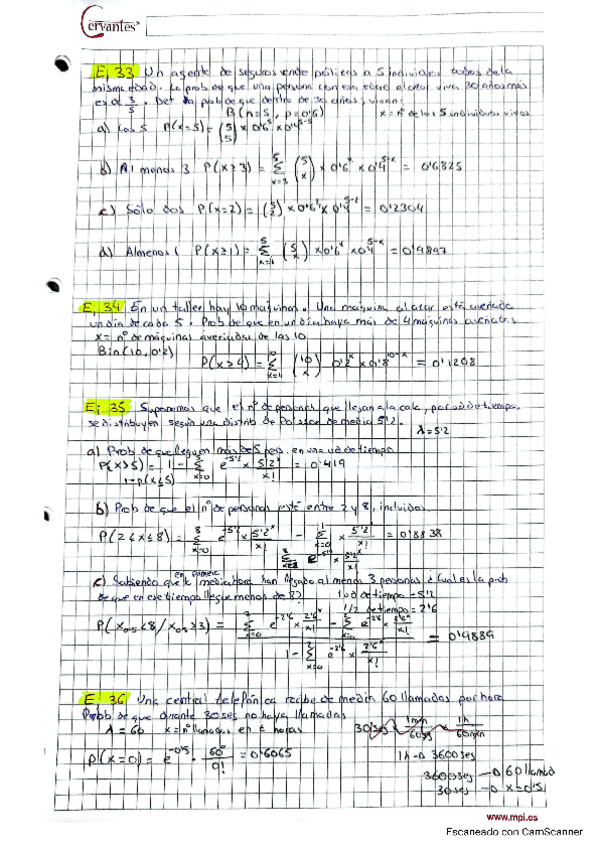 Cervantes
Ej 33 Un agente de seguros vende pólizas a 5 individuos todos de la
misma edad. La prob de que una persona con esa edad al azar viva 30 años más
es de 3/5. Det la prob de que dentro de 30 años, vivan:
B(n=5, p=0'6) x=nº de los 5 individuos vivos
a) Los 5 P(x=5)= (5 5) × 0'6^5 × 0'4^5-5
b) Al menos 3 P(x≥3) = 5 Σ x=3 (5 x) × 0'6^x × 0'4^5-x = 0'6825
c) Sólo dos P(x=2) = (5 2) × 0'6^2 × 0'4^5-2 = 0'2304
d) Al menos 1 P(x≥1) = 5 Σ x=1 (5 x) × 0'6^x × 0'4^5-x = 0'9897
Ej 34 En un taller hay 10 maquinas. Una maquina al azar está averiada
un dia de cada 5. Prob de que en un dia haya más de 4 máquinas averiadas
x= nº de máquinas averiadas de las 10
Bin(10, 0'2) P(x≥4) = 10 Σ x=4 (10 x) 0'2^x × 0'8^10-x = 0'1208
Ej 35 Suponemos que el nº de personas que llegan a la cola, por ud de tiempo,
se distribuyen según una distrib de Poisson de media 5'2. λ=5'2
a) Prob de que lleguen más de 5 pers. en una ud de tiempo
P(x>5) = 1 - 5 Σ x=0 e^-5'2 × 5'2^x / x! = 0'419
1-p(x≤5)
b) Prob de que el nº de personas esté entre 2 y 8, incluidos.
P(2≤x≤8) = 8 Σ x=0 e^-5'2 × 5'2^x / x! - 1 Σ x=0 × 5'2^x / x! = 0'8838
8 Σ x=2 e^-5'2 × 5'2^x / x!
c) Sabiendo que en primera media hora han llegado al menos 3 personas ¿Cual es la prob
de que en ese tiempo llegue menos de 8? 1 ud de tiempo = 5'2
1/2 de tiempo = 2'6
P(x0'5<8 / x0'5≥3) = 7 Σ x=0 e^-2'6 × 2'6^x / x! - 2 Σ x=0 e^-2'6 × 2'6^x / x! = 0'9889
1 - 2 Σ x=0 e^-2'6 × 2'6^x / x!
Ej 36 Una central telefónica recibe de media 60 llamadas por hora
Prob de que durante 30 seg no haya llamadas
λ = 60 x=nº llamadas en horas 30 seg × 1min / 60sg × 1h / 60min
P(x=0) = e^-0'5 · 60^0 / 0! = 0'6065 1h → 3600 seg
3600 seg → 60 llamad
30 seg → x=0'5
www.mpi.es
Escaneado con CamScanner